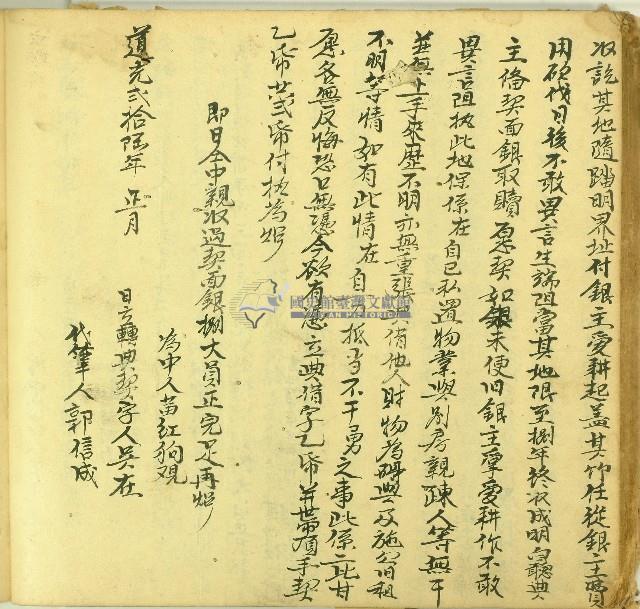 收訖其地隨踏明界址付銀主愛耕起蓋其竹任從銀主賣
用砍伐日後不敢異言生端阻當其地限至捌年終收成明白聽典
主俻契面銀取贖原契如銀未便旧銀主掌愛耕作不敢
異言阻执此地保係在自己私置物業與別房親疎人等無干
並無上手來歷不明亦無重張典借他人財物為碍典及施欠旧租
不明等情如有此情在自力抵当不干勇之事此係二比甘
愿各無反悔恐口無憑今欲有憑立典借字乙帋並帶頂手契
乙帋共弍帋付执為炤
即日仝中親收過契面銀捌大員正完足再炤
為中人黃紅狗观
道光弍拾陸年 正月
日立轉典契字人吳在
代筆人郭信成
國史館臺灣文獻館